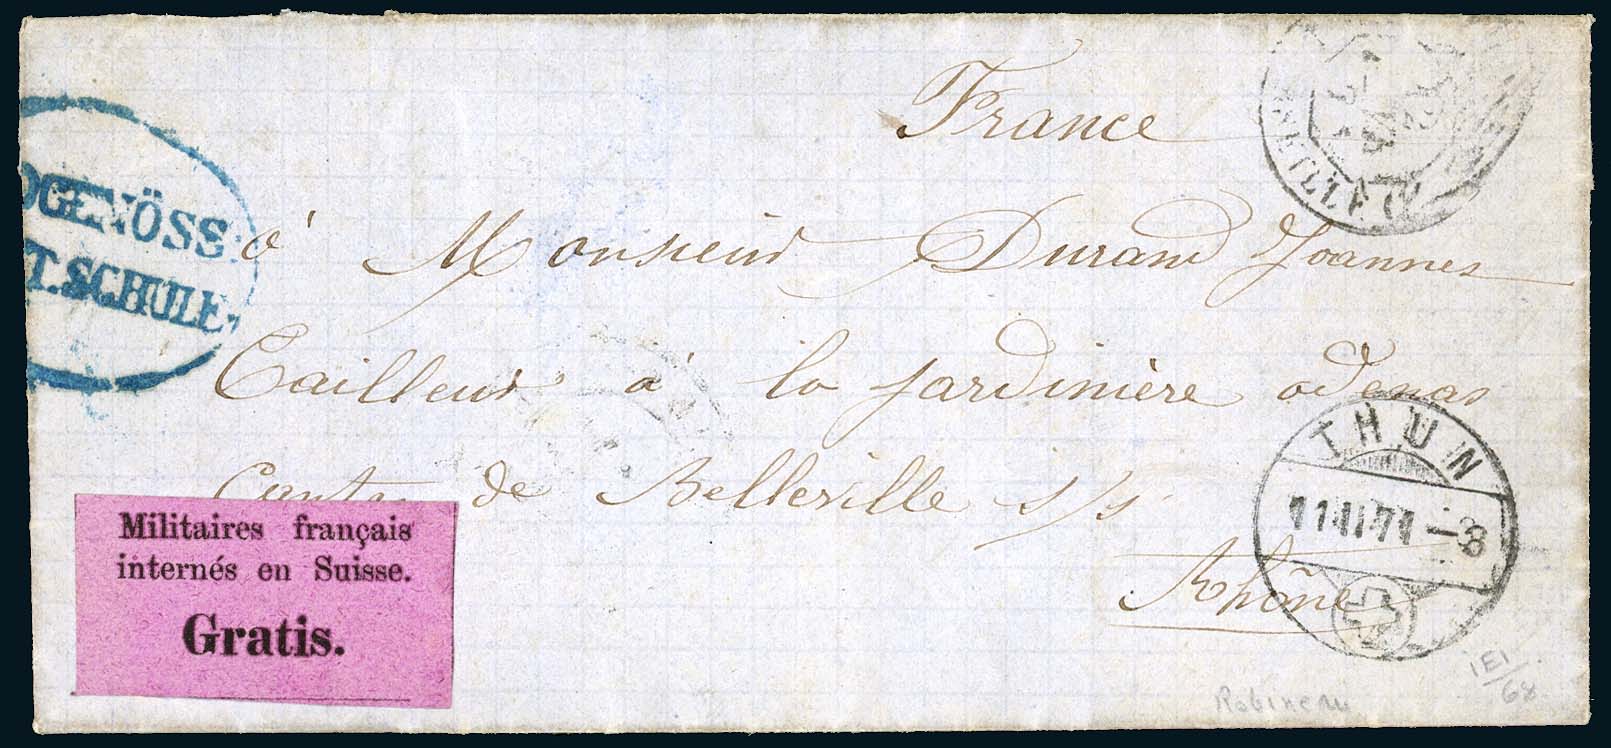 France
OGENÖSS:
T.SCHULE.
à Monsieur Durand Joannes
Tailleur à la jardinière odenas
Canton de Belleville s/s
Rhône
Militaires français
internés en Suisse.
Gratis.
THUN
11 II 71 - 8
1E1/68
Robineau